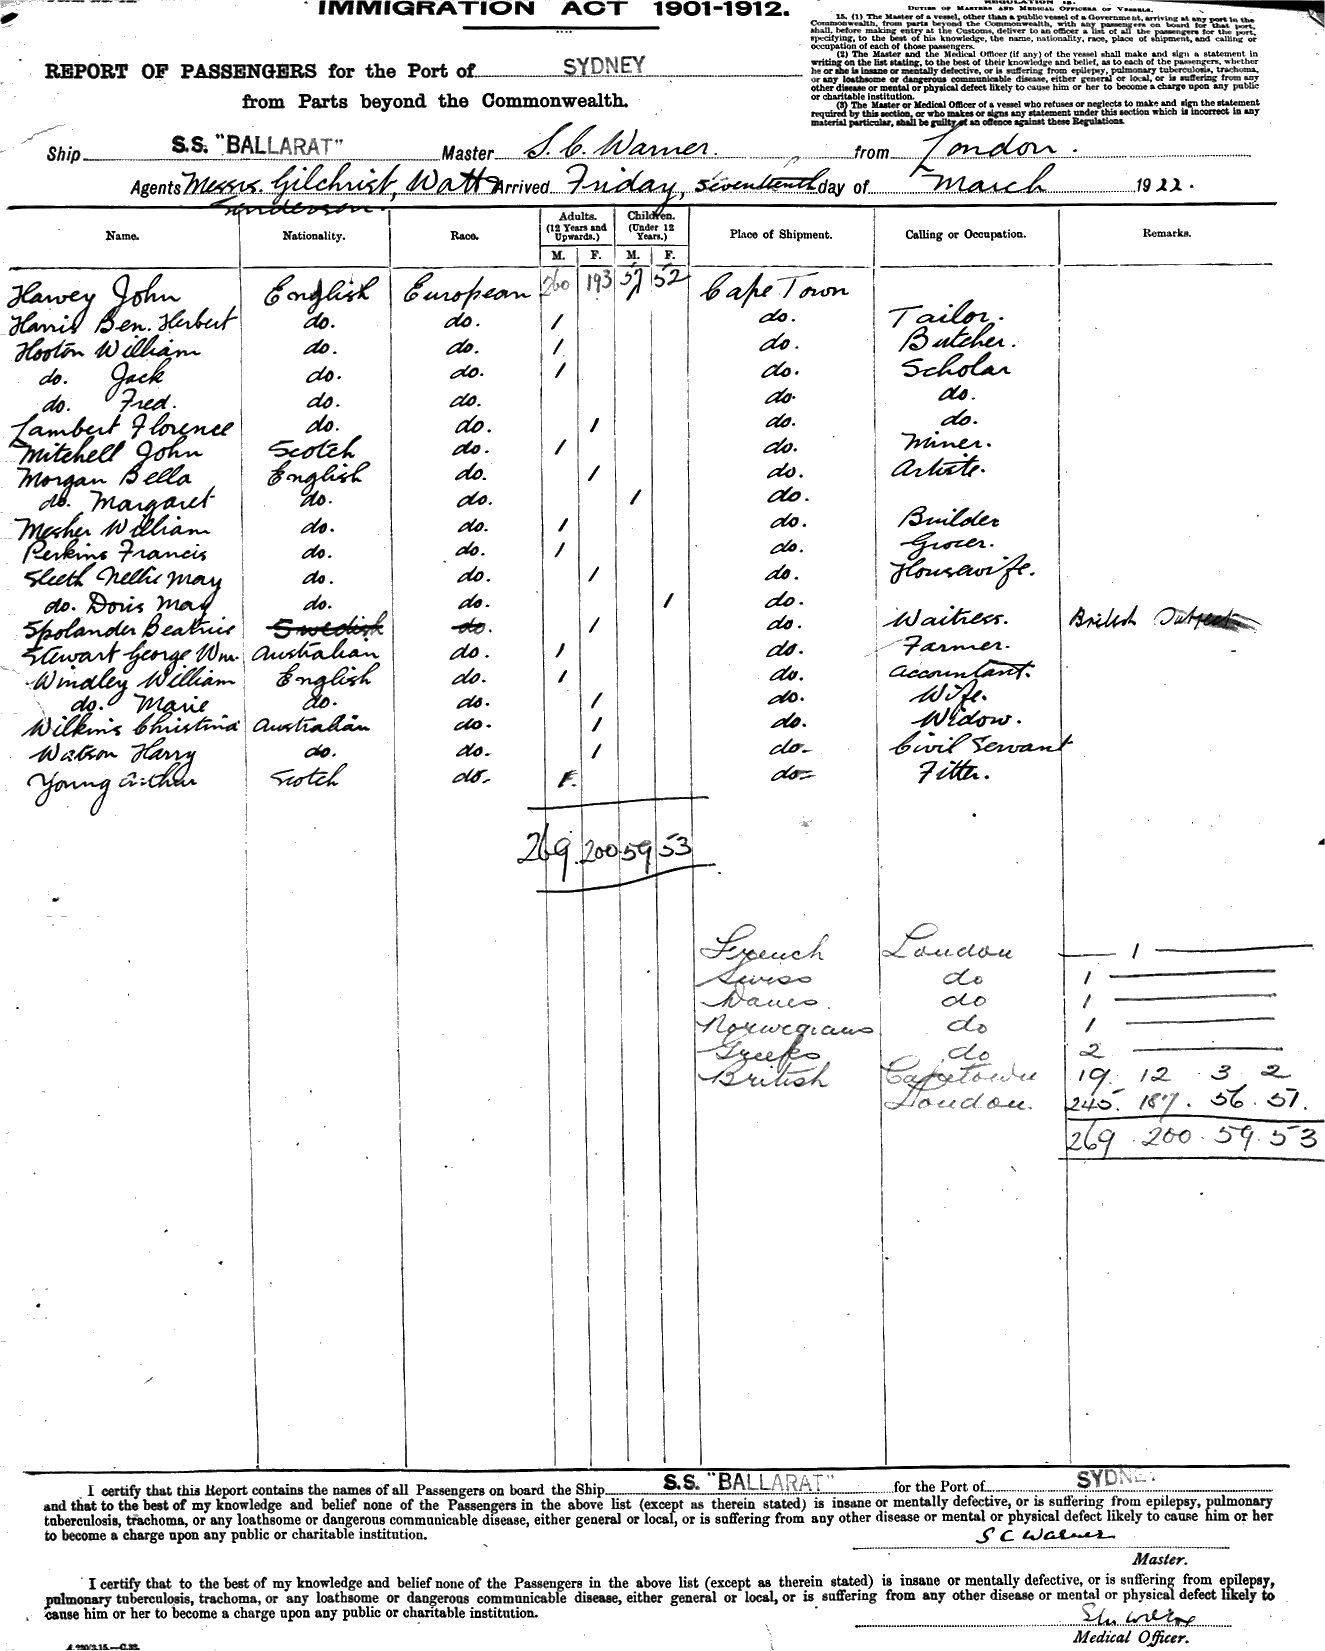 IMMIGRATION ACT 1901-1912.
REGULATION 15.
DUTIES OF MASTERS AND MEDICAL OFFICERS OF VESSELS.
15. (1) The Master of a vessel, other than a public vessel of a Government, arriving at any port in the
Commonwealth, from parts beyond the Commonwealth, with any passengers on board for that port,
shall, before making entry at the Customs, deliver to an officer a list of all the passengers for the port,
specifying, to the best of his knowledge, the name, nationality, race, place of shipment, and calling or
occupation of each of those passengers.
(2) The Master and the Medical Officer (if any) of the vessel shall make and sign a statement in
writing on the list stating, to the best of their knowledge and belief, as to each of the passengers, whether
he or she is insane or mentally defective, or is suffering from epilepsy, pulmonary tuberculosis, trachoma,
or any loathsome or dangerous communicable disease, either general or local, or is suffering from any
other disease or mental or physical defect likely to cause him or her to become a charge upon any public
or charitable institution.
(3) The Master or Medical Officer of a vessel who refuses or neglects to make and sign the statement
required by this section, or who makes or signs any statement under this section which is incorrect in any
material particular, shall be guilty of an offence against these Regulations.
REPORT OF PASSENGERS for the Port of SYDNEY
from Parts beyond the Commonwealth.
Ship S.S. "BALLARAT" Master S. C. Warner. from London.
Agents Messrs. Gilchrist, Watt & Arrived Friday, seventeenth day of March 1922.
Sanderson.
Name. Nationality. Race. Adults. (12 Years and Upwards.) Children. (Under 12 Years.) Place of Shipment. Calling or Occupation. Remarks.
M. F. M. F.
Harvey John English European 260 193 57 52 Cape Town
Harris Ben. Herbert do. do. 1 do. Tailor.
Hooton William do. do. 1 do. Butcher.
do. Jack do. do. 1 do. Scholar
do. Fred. do. do. do. do.
Lambert Florence do. do. 1 do. do.
Mitchell John Scotch do. 1 do. Miner.
Morgan Bella English do. 1 do. Artiste.
do. Margaret do. do. 1 do.
Mesher William do. do. 1 do. Builder
Perkins Francis do. do. 1 do. Grocer.
Sleeth Nellie May do. do. 1 do. Housewife.
do. Doris May do. do. 1 do.
Spolander Beatrice Swedish do. 1 do. Waitress. British Subject
Stewart George Wm. Australian do. 1 do. Farmer.
Windley William English do. 1 do. Accountant.
do. Marie do. do. 1 do. Wife.
Wilkins Christina Australian do. 1 do. Widow.
Watson Harry do. do. 1 do. Civil Servant
Young Arthur Scotch do. do. Fitter.
269 200 59 53
French London 1
Swiss do 1
Danes. do 1
Norwegians do 1
Greeks do 2
British Capetown 19 12 3 2
London. 245 187 56 51.
269 200 59 53
I certify that this Report contains the names of all Passengers on board the Ship S.S. "BALLARAT" for the Port of SYDNEY
and that to the best of my knowledge and belief none of the Passengers in the above list (except as therein stated) is insane or mentally defective, or is suffering from epilepsy, pulmonary
tuberculosis, trachoma, or any loathsome or dangerous communicable disease, either general or local, or is suffering from any other disease or mental or physical defect likely to cause him or her
to become a charge upon any public or charitable institution.
S C Warner
Master.
I certify that to the best of my knowledge and belief none of the Passengers in the above list (except as therein stated) is insane or mentally defective, or is suffering from epilepsy,
pulmonary tuberculosis, trachoma, or any loathsome or dangerous communicable disease, either general or local, or is suffering from any other disease or mental or physical defect likely to
cause him or her to become a charge upon any public or charitable institution.
Medical Officer.